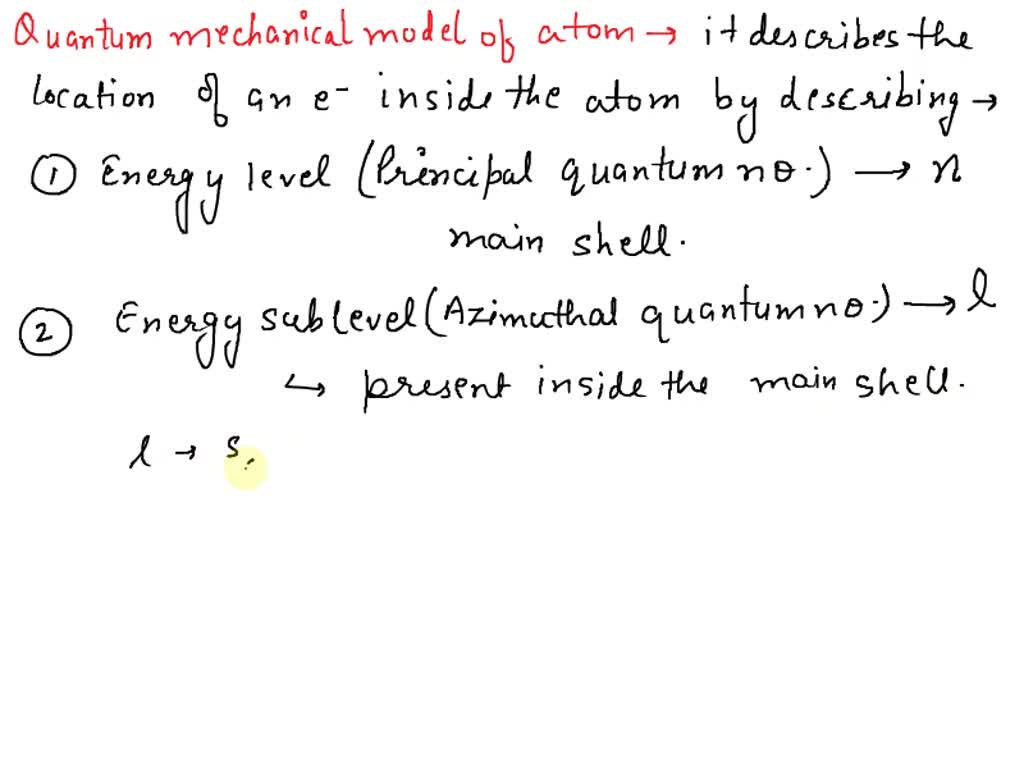 Quantum mechanical model of atom → it describes the
location of an e⁻ inside the atom by describing →
① Energy level (Principal quantum no.) → n
main shell.
② Energy sublevel (Azimuthal quantum no.) → l
↳ present inside the main shell.
l → s,